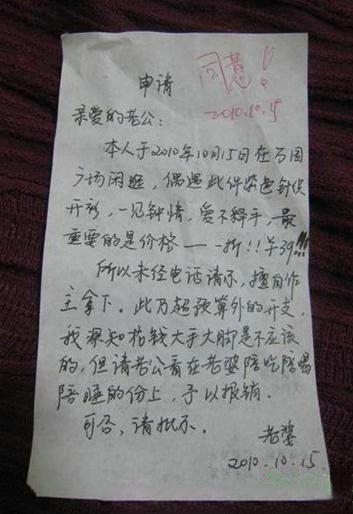 同意!
2010.10.15
申请
亲爱的老公:
本人于2010年10月15日在万国
广场闲逛,偶遇此件紫色针织
开衫,一见钟情,爱不释手,最
重要的是价格——一折!!才39!!!
所以未经电话请示,擅自作
主拿下。此乃超预算外的开支,
我深知花钱大手大脚是不应该
的,但请老公看在老婆陪吃陪喝
陪睡的份上,予以报销.
可否,请批示。
老婆
2010.10.15